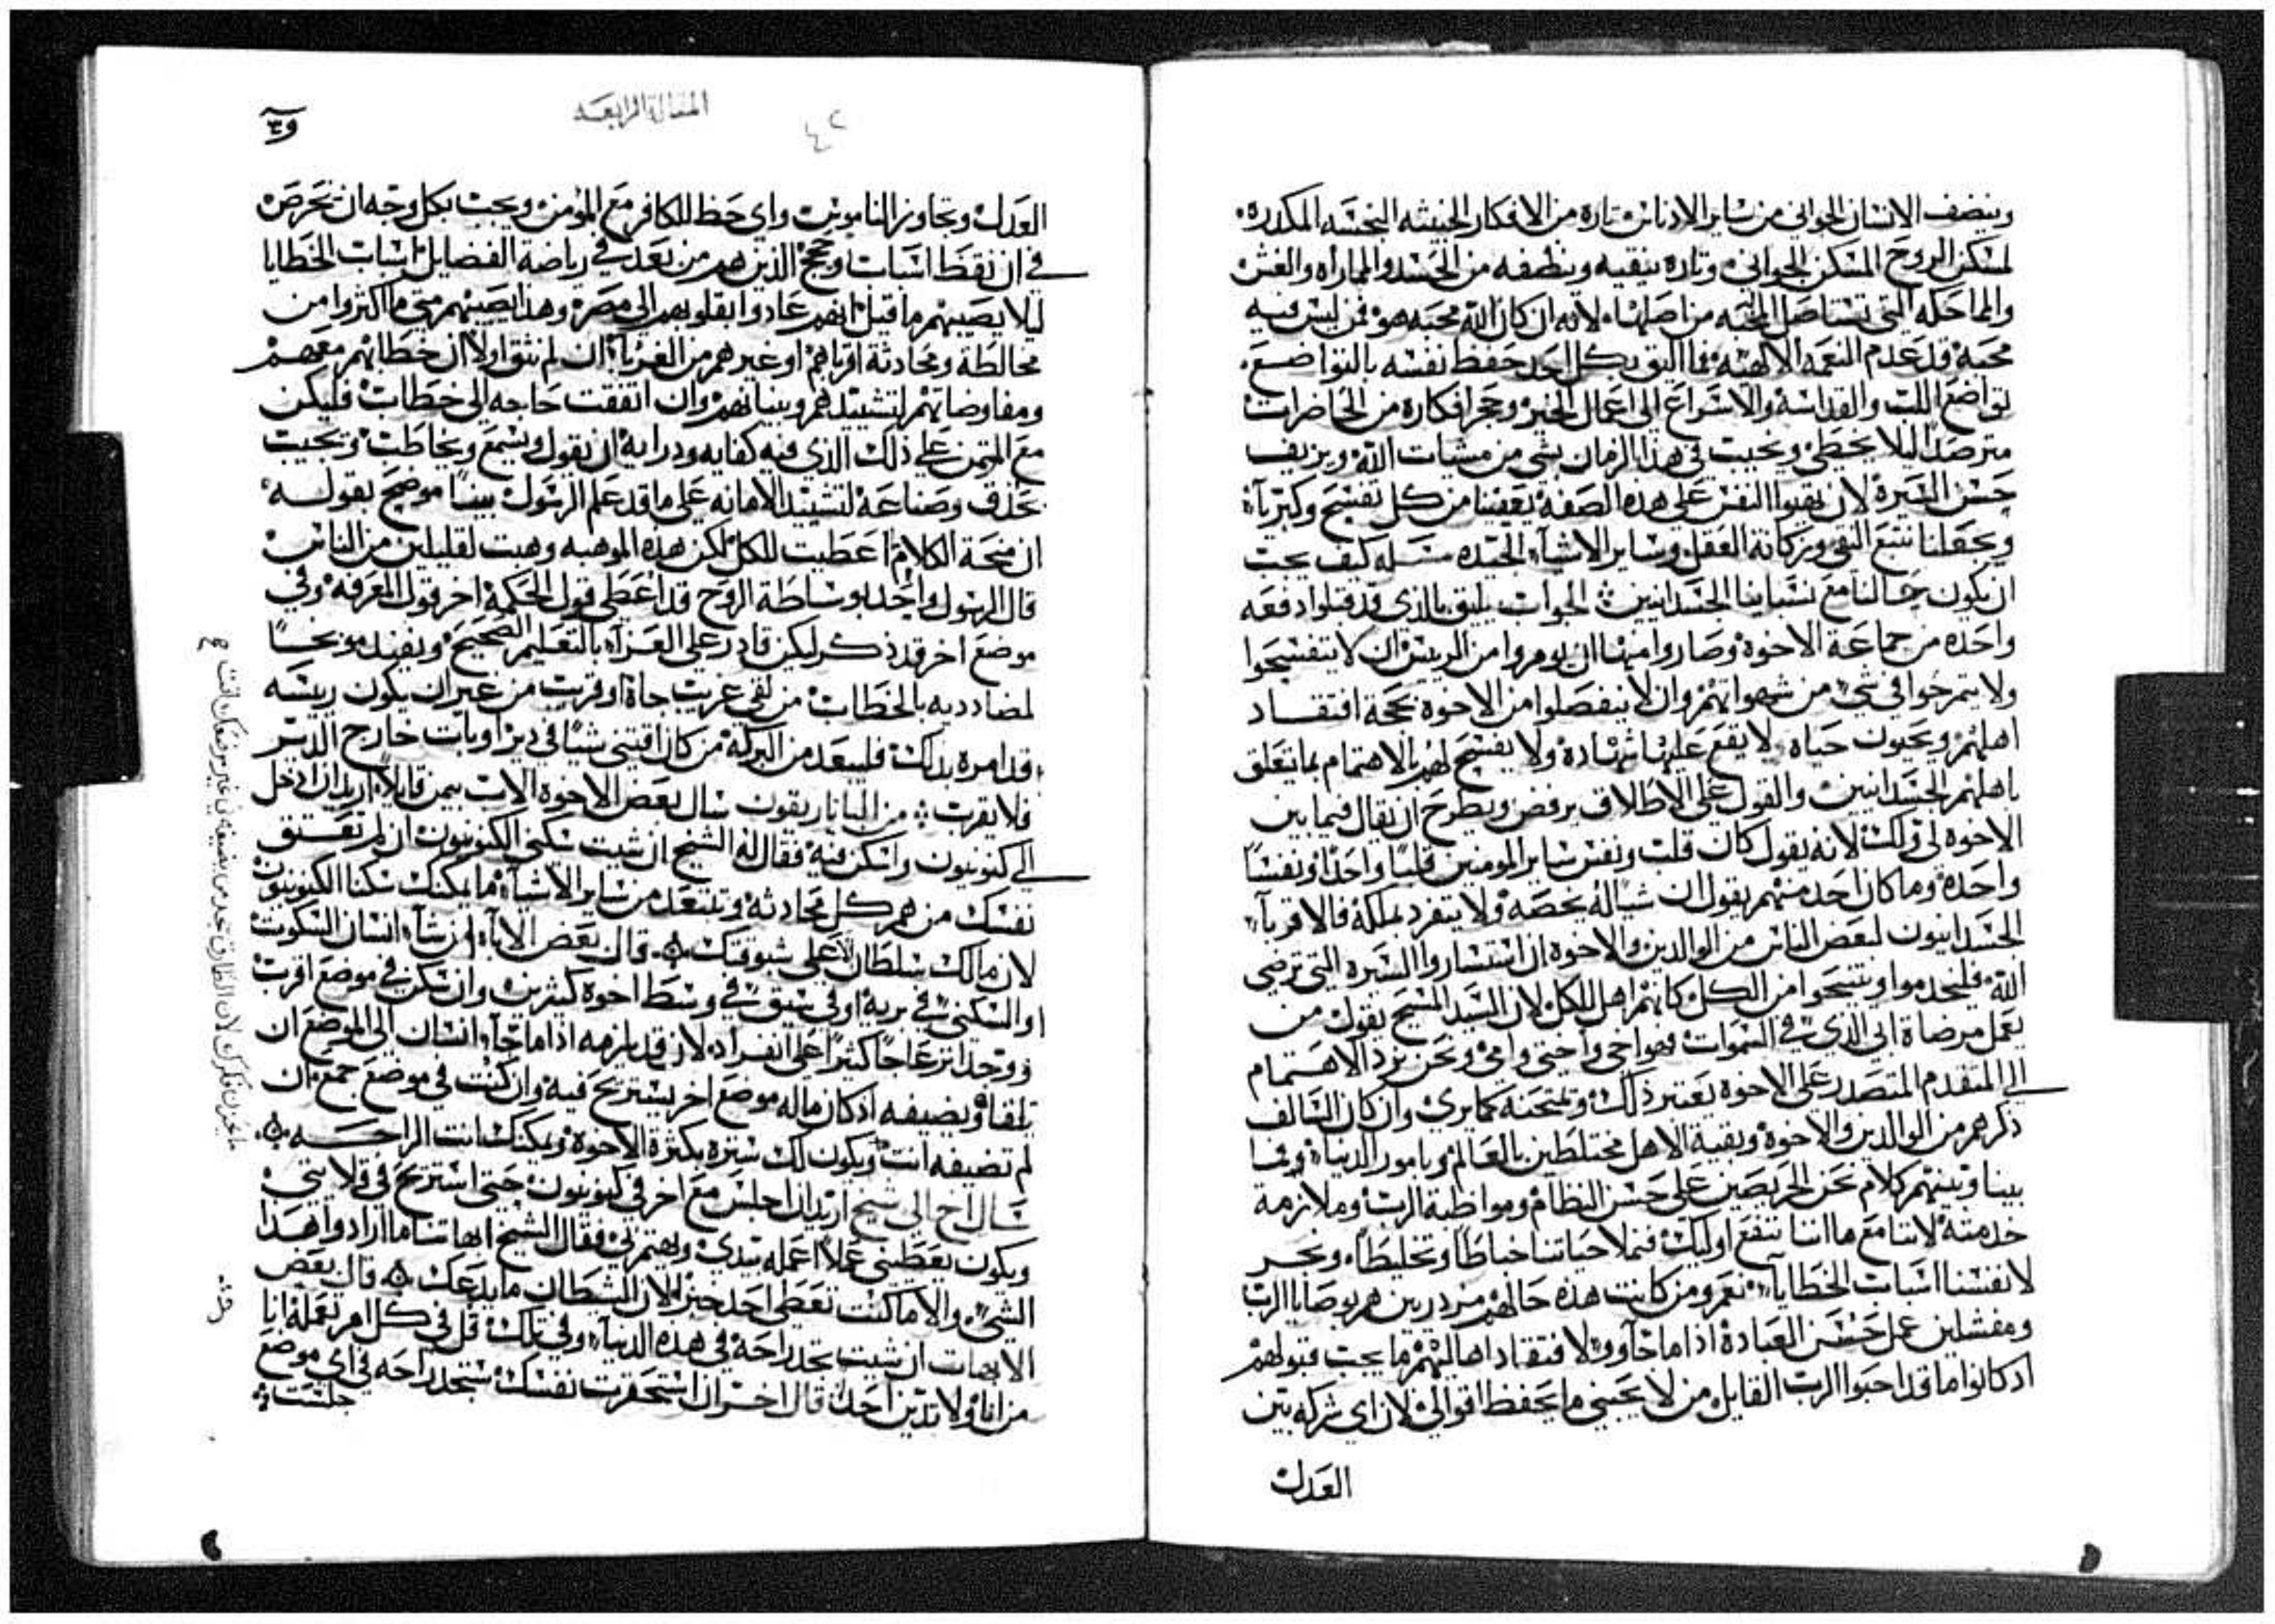 وينضف الانسان الجواني من ساير الادناس تاره من الافكار الخبيثه النجسه المكدره
لمسكن الروح المسكن الجواني وتاره ينقيه وينظفه من الحسد والمماراه والغش
والماحكه التي تستاصل المحبه من اصلها لانه ان كان الله محبه هو فمن ليس فيه
محبه قد عدم النعمه الالاهيه فما اليق بكل احد حفظ نفسه بالتواضع
تواضع اللب والقداسه والاسراع الى اعمال الخير وحجز افكاره من الحاضرات
مترصدا ليلا يخطي ويخيب في هذا الزمان بشي من مشيات الله ويزيف
حسن السيره لان يقينوا النفس على هذه الصفه تعفينا من كل تفسح وكبريآء
ويجعلنا نتبع التقى وزكانة العقل وساير الاشيآء الجيده مسله كيف يجب
ان يكون حالنا مع نسباينا الجسدانيين الجواب يليق بالذي قد قبلوا دفعه
واحده من جماعة الاخوه وصاروا منها ان يومروا من الريس ان لا يتفسحوا
ولا يتمرخوا في شي من شهواتهم وان لا ينفصلوا من الاخوه بحجة افتقاد
اهلهم ويحيون حياه لا يقع عليها شهاده ولا يفسح لهم بالاهتمام بما يتعلق
باهلهم الجسدانيين والقول على الاطلاق يرفض ويطرح ان يقال فيما بين
الاخوه لي ولك لانه يقول كان قلب ونفس ساير المومنين قلبا واحدا ونفسا
واحده وما كان احد منهم يقول ان شيا له يخصه ولا يتفرد بملكه فالاقربآء
الجسدانيون لبعض الناس من الوالدين والاخوه ان استساروا السيره التي ترضي
الله فليخدموا وينتيحوا من الكل كانهم اهل للكل لان السيد المسيح يقول من
يعمل مرضاة ابي الذي في السموات فهو اخي واختي وامي ونحن نرد الاهتمام
الى المتقدم المتصدر على الاخوه يعتبر ذلك ويمتحنه كما يرى وان كان السالف
ذكرهم من الوالدين والاخوه وبقية الاهل مختلطين بالعالم وبامور الدنيا وفما
بينا وبينهم كلام نحن الحريصين على حسن النظام ومواظبة الرب وملازمة
خدمته لاننا مع ما اننا ننفع اوليك فنملا حياتنا خباطا وتخليطا ونجر
لانفسنا اسباب الخطايآء نعم ومن كانت هذه حالهم مزدريين هم بوصايا الرب
ومفشلين عمل حسن العباده اذا ما جآووا لافتقاد اهاليهم ما يجب قبولهم
اذ كانوا ما قد احبوا الرب القايل من لا يحبني ما يحفظ اقوالي لان اي شركه بين
العدل
المقالة الرابعه
٤٢
العدل وتجاوز الناموس واي حظ للكافر مع المومن ويجب بكل وجه ان نحرص
في ان نقطع اسباب وحجج الذين هم من بعد في رياضة الفضايل اسباب الخطايا
ليلا يصيبهم ما قيل انهم عادوا بقلوبهم الى مصر وهذا يصيبهم متى ما اكثروا من
مخالطة ومحادثة اقرباهم او غيرهم من الغربآء ان لم نثق اولا ان خطابهم معهم
ومفاوضاتهم لتشييدهم وبنيانهم وان اتفقت حاجه الى خطاب فليكن
مع المتمن على ذلك الذي فيه كفايه ودرايه ان يقول ويسمع ويخاطب ويجيب
بحذق وصناعة لتشييد الامانه على ما قد علم الرسول بينا موضح بقوله
ان منحة الكلام ما اعطيت للكل لكن هذه الموهبه وهبت لقليلين من الناس
قال الرسول واحد بوساطة الروح قد اعطى قول الحكمه اخر قول المعرفه وفي
موضع اخر قد ذكر ليكن قادر على العزآء بالتعليم الصحيح ويفيد موبخا
لمضادديه بالخطاب من لقي غريب جاه او قريب من غير ان يكون ريسه
قد امره بذلك فليبعد من البركه من كان اقتنى شيا في دير او بات خارج الدير
فلا يقرب من البانار يقون سال بعض الاخوه الاب بيمن قايلا اريد ان ادخل
الى كنونيون واسكن فيه فقال له الشيخ ان شيت سكنى الكنونيون ان لم تعتق
نفسك من هم كل محادثه وتبتعد من ساير الاشيآء ما يمكنك سكنا الكنونيون
لان ما لك سلطان على شبوقتك قال بعض الابآء ان شآء انسان السكوت
او السكنى في بريه او في سيق في وسط اخوه كثيرين وان سكن في موضع اقرب
ووجد انزعاجا كثيرا على انفراد لان قد يلزمه اذا ما جآء انسان الى الموضع ان
يلقاه ويضيفه اذ كان ماله موضع اخر يستريح فيه وان كنت في موضع جمع ان
لم تضيفه انت ويكون لك ستره بكثرة الاخوه ويمكنك انت الراحه
سال اخ الى شيخ اريد ان اجلس مع اخر في كنونيون حتى استريح في قلايتي
ويكون يعطيني عملا اعمله بيدي ويهتم بي فقال الشيخ ابهاتنا ما ارادوا هذا
الشي والا ما كنت تعطي احد خبز لان الشيطان ما يدعك قال بعض
الابهات ان شيت تجد راحه في هذه الدنيآء وفي تلك قل في كل امر تعمله انا
من انا ولا تدين احد قال اخر ان استحقرت نفسك ستجد راحه في اي موضع
جلست